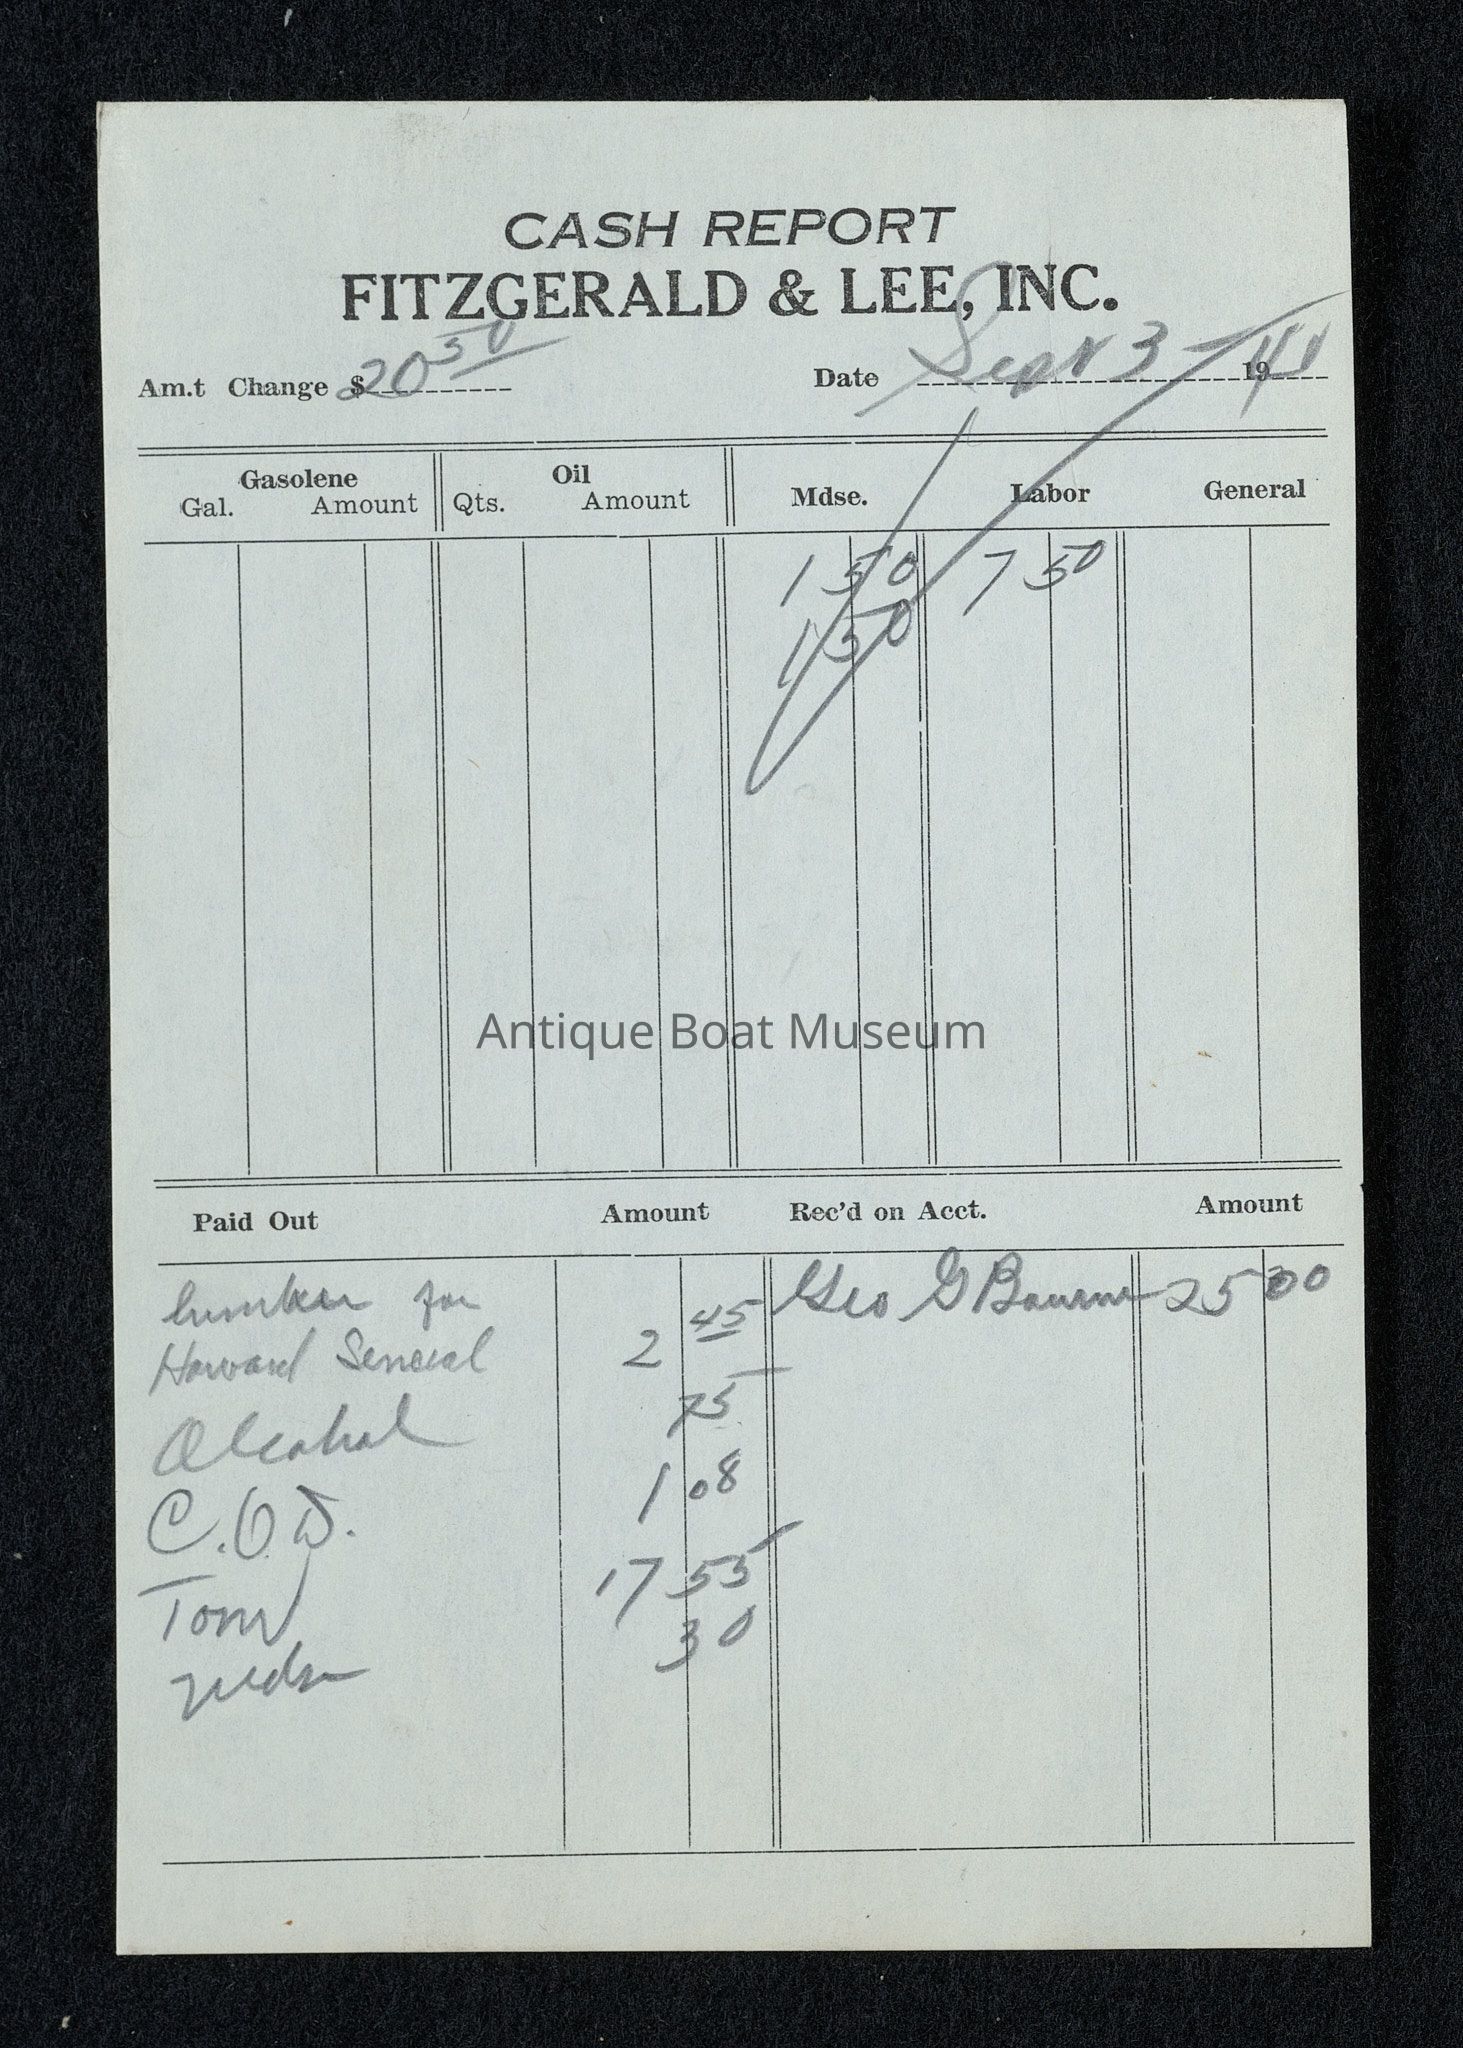 CASH REPORT
FITZGERALD & LEE, INC.
Am.t Change $ 20 50 Date Sept 3 1941
Gasolene Oil Mdse. Labor General
Gal. Amount Qts. Amount
1 50 7 50
1 50
Antique Boat Museum
Paid Out Amount Rec'd on Acct. Amount
lumber for Geo G Bourne 25 00
Howard Senecal 2 45
Alcohol 75
C.O.D. 1 08
Tom 17 55
Mdse 30